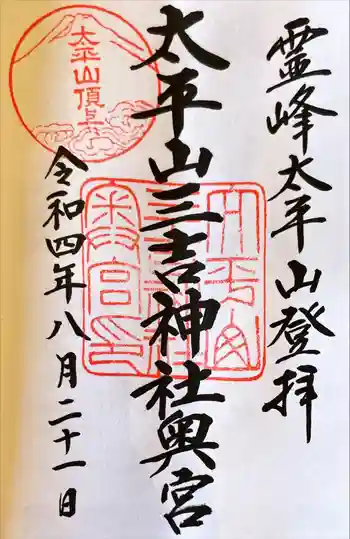 霊峰太平山登拝
太平山三吉神社奥宮
令和四年八月二十一日
太平山頂上